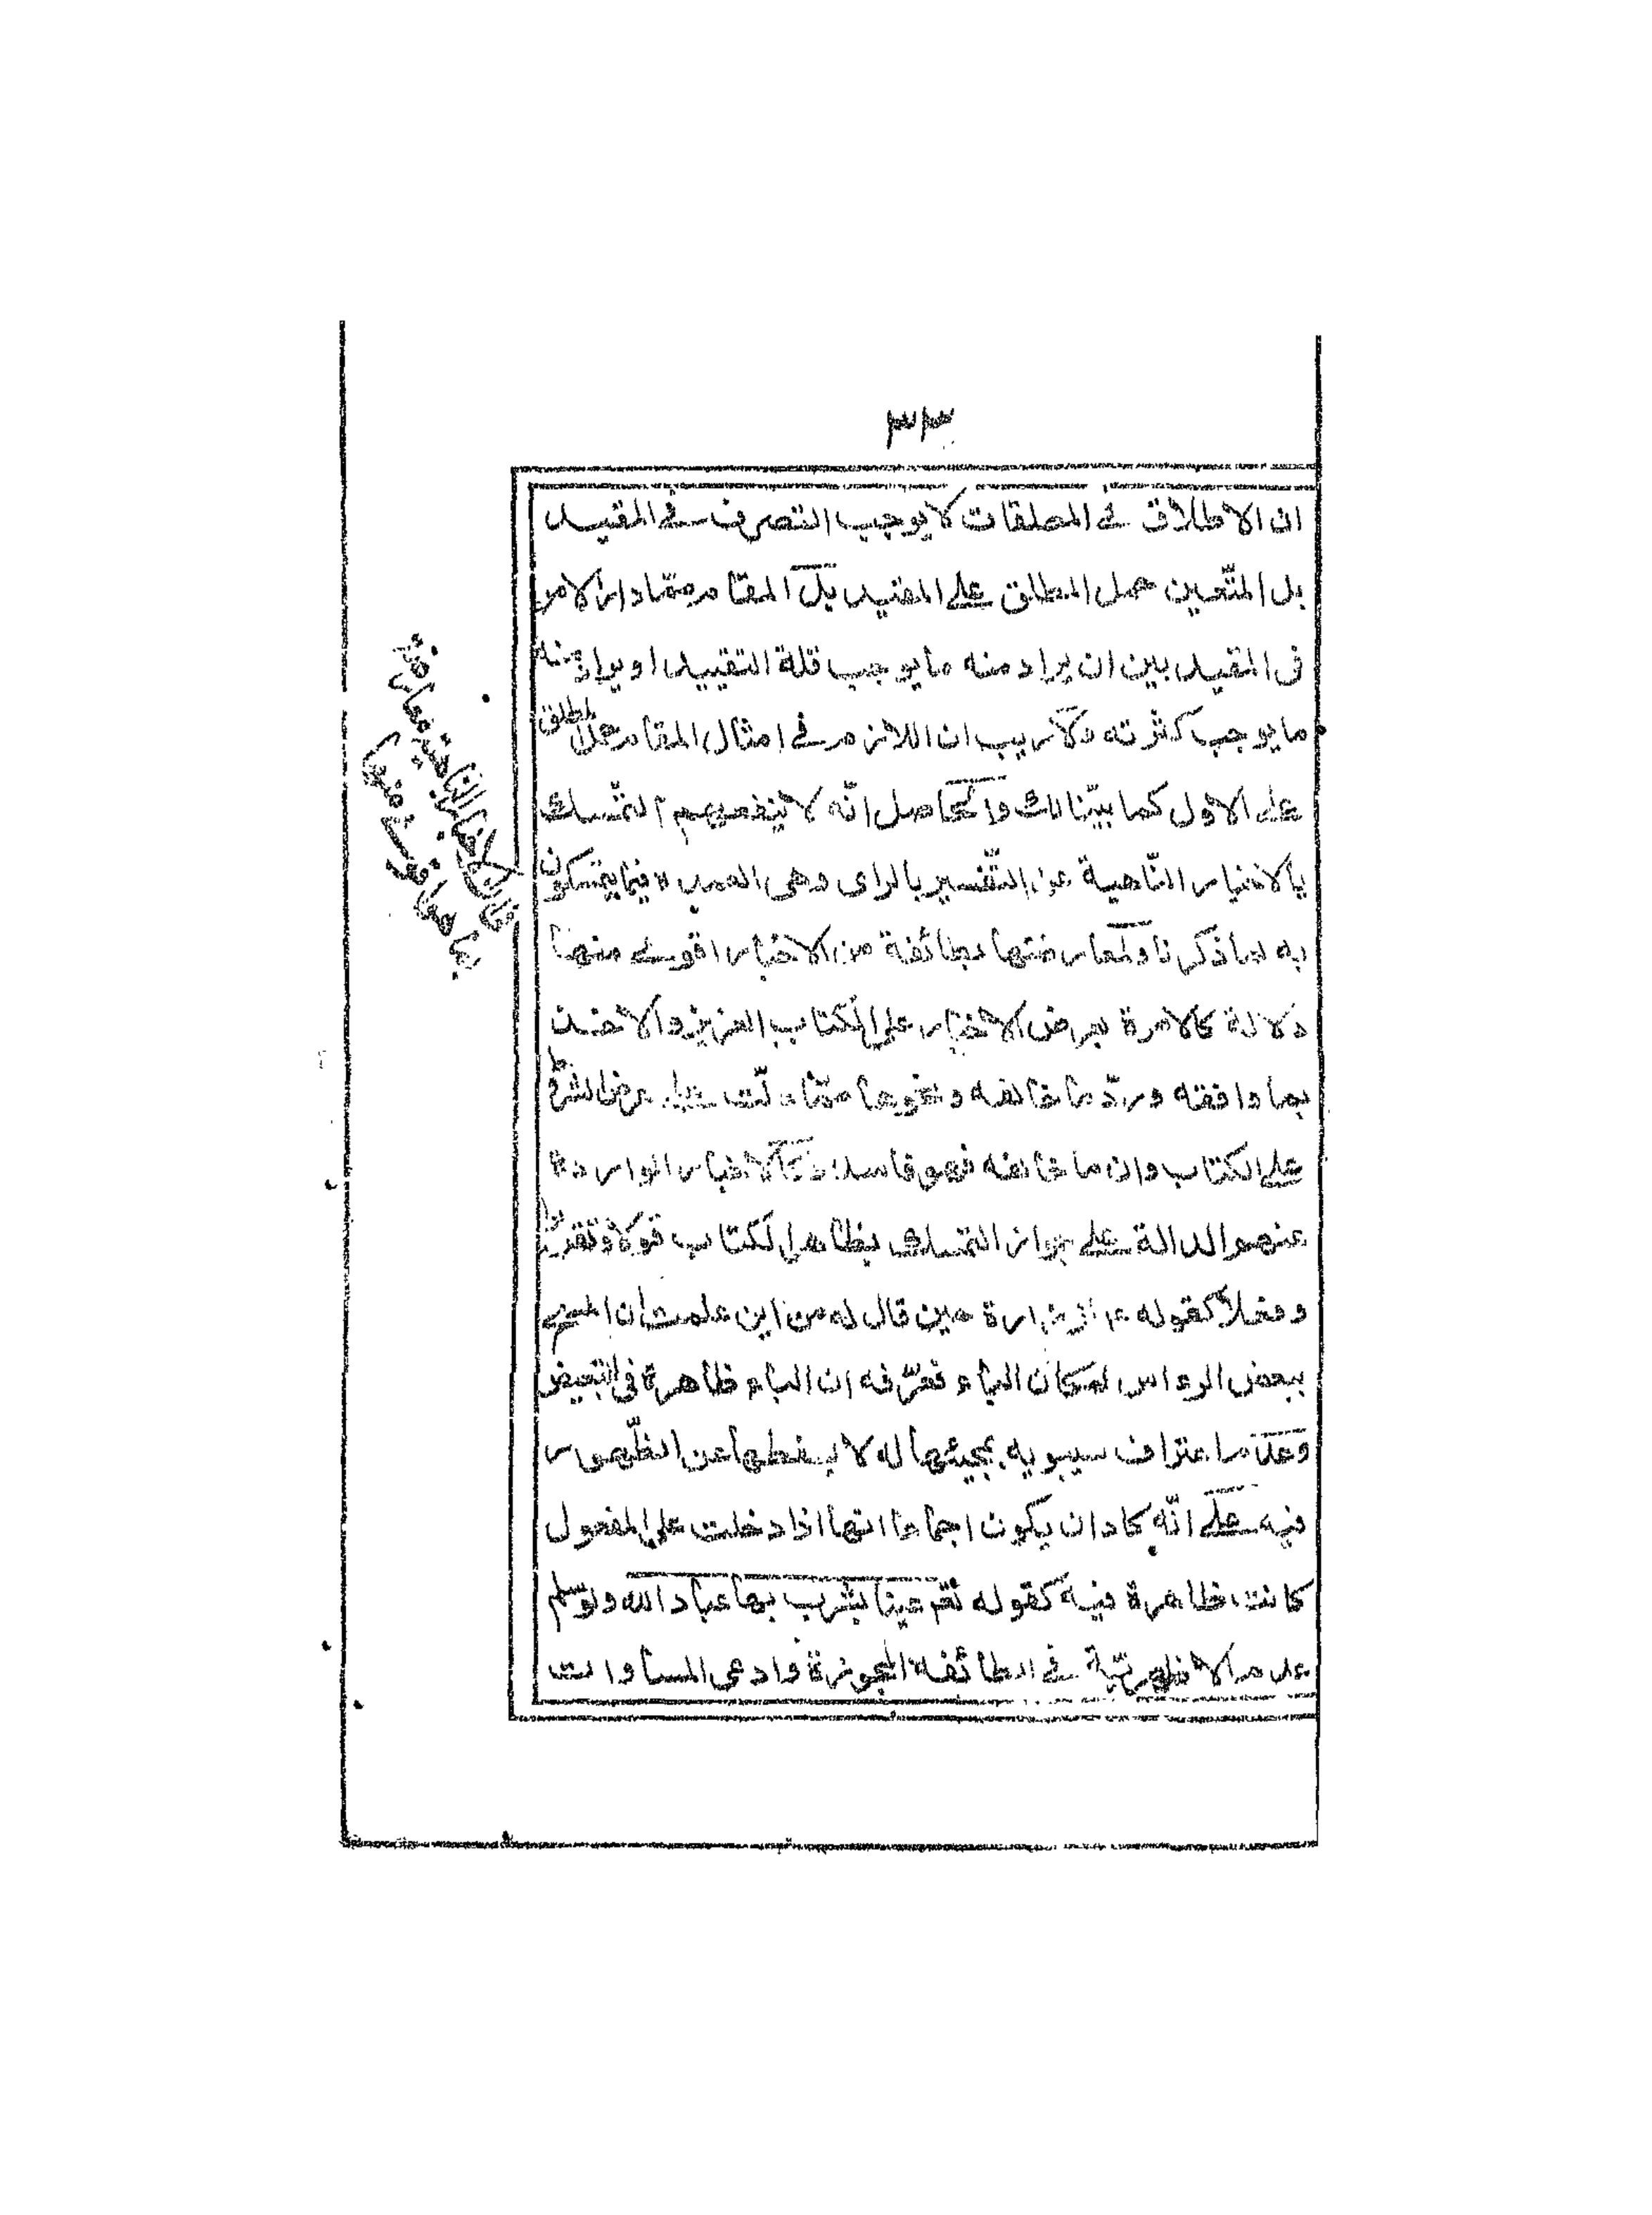 ٣٣
ان الاطلاق فى المطلقات لا يوجب التصرف فى المقيد
بل المتّعين حمل المطلق على المقيد بل المقام ممّا دار الامر
فى المقيد بين ان يراد منه ما يوجب قلة التقييد او يراد منه
ما يوجب كثرته ولا ريب ان اللازم فى امثال المقام حمل المطلق
على الاول كما بيّنا لك والحاصل انّه لا ينفعهم التمّسك
بالاخبار النّاهية عن التّفسير بالراى وهى العمدة فيما يتمسكون
به لما ذكرنا ولمعارضتها بطائفة من الاخبار اقوى منها
دلالة كالامرة بعرض الاخبار على الكتاب العزيز والاخذ
بما وافقه وردّ ما خالفه ونحوها ممّا دلّت على عرض الشرط
على الكتاب وان ما خالفه فهو فاسد وكالاخبار الواردة
عنهم الدالة على جواز التمسك بظاهر الكتاب قولا وتقريرا
وفعلا كقوله ع لزرارة حين قال له من اين علمت ان المسح
ببعض الراس لمكان الباء فعرّفه ان الباء ظاهرة فى التبعيض
وعدم اعتراف سيبويه بمجيئها له لا يسقطها عن الظّهور
فيه على انّه كاد ان يكون اجماعا انها اذا دخلت على المفعول
كانت ظاهرة فيه كقوله تعم عينا يشرب بها عباد الله ولو سلم
عدم الاظهريّة فى الطائفة المجوزة وادعى المساوات
فان الاخبار الناهية معارضة
بما هو اقوى منها